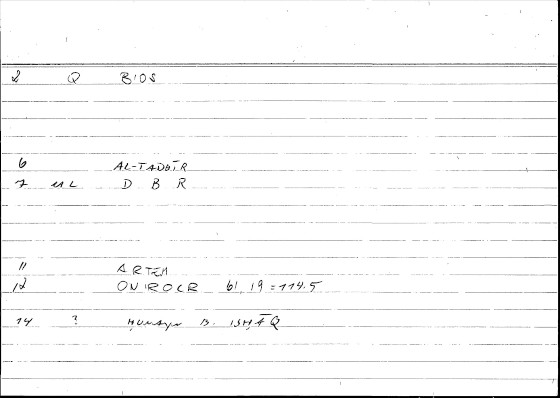 2 Q BIOS
6 AL-TADBĪR
7 ML D B R
11 ARTEM
12 ONIROCR 61,19 = 114.5
14 ? Ḥunayn B. ISḤĀQ